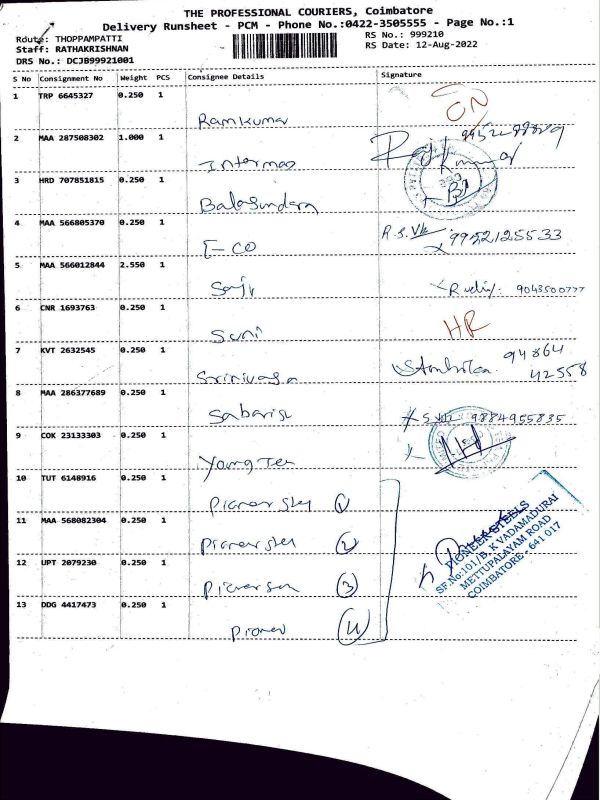 THE PROFESSIONAL COURIERS, Coimbatore
Delivery Runsheet - PCM - Phone No.:0422-3505555 - Page No.:1
Route: THOPPAMPATTI
RS No.: 999210
Staff: RATHAKRISHNAN
RS Date: 12-Aug-2022
DRS No.: DCJB99921001
S No Consignment No Weight PCS Consignee Details Signature
1 TRP 6645327 0.250 1
Ramkumar
2 MAA 287508302 1.000 1
3 HRD 707851815 0.250 1
Balasundara
4 MAA 566805370 0.250 1
E-CO 9952125533
5 MAA 566012844 2.550 1
Saju 9043500777
6 CNR 1693763 0.250 1
Suni HR
7 KVT 2632545 0.250 1
Srinivasa Ambika 94864
42558
8 MAA 286377689 0.250 1
Sabarish 9884955835
9 COK 23133303 0.250 1
Young Tex
10 TUT 6148916 0.250 1
1
11 MAA 568082304 0.250 1
2
12 UPT 2079230 0.250 1
3
13 DDG 4417473 0.250 1
Pioneer 4
PIONEER STEELS
SF.No:101/B, K VADAMADURAI
METTUPALAYAM ROAD
COIMBATORE - 641 017